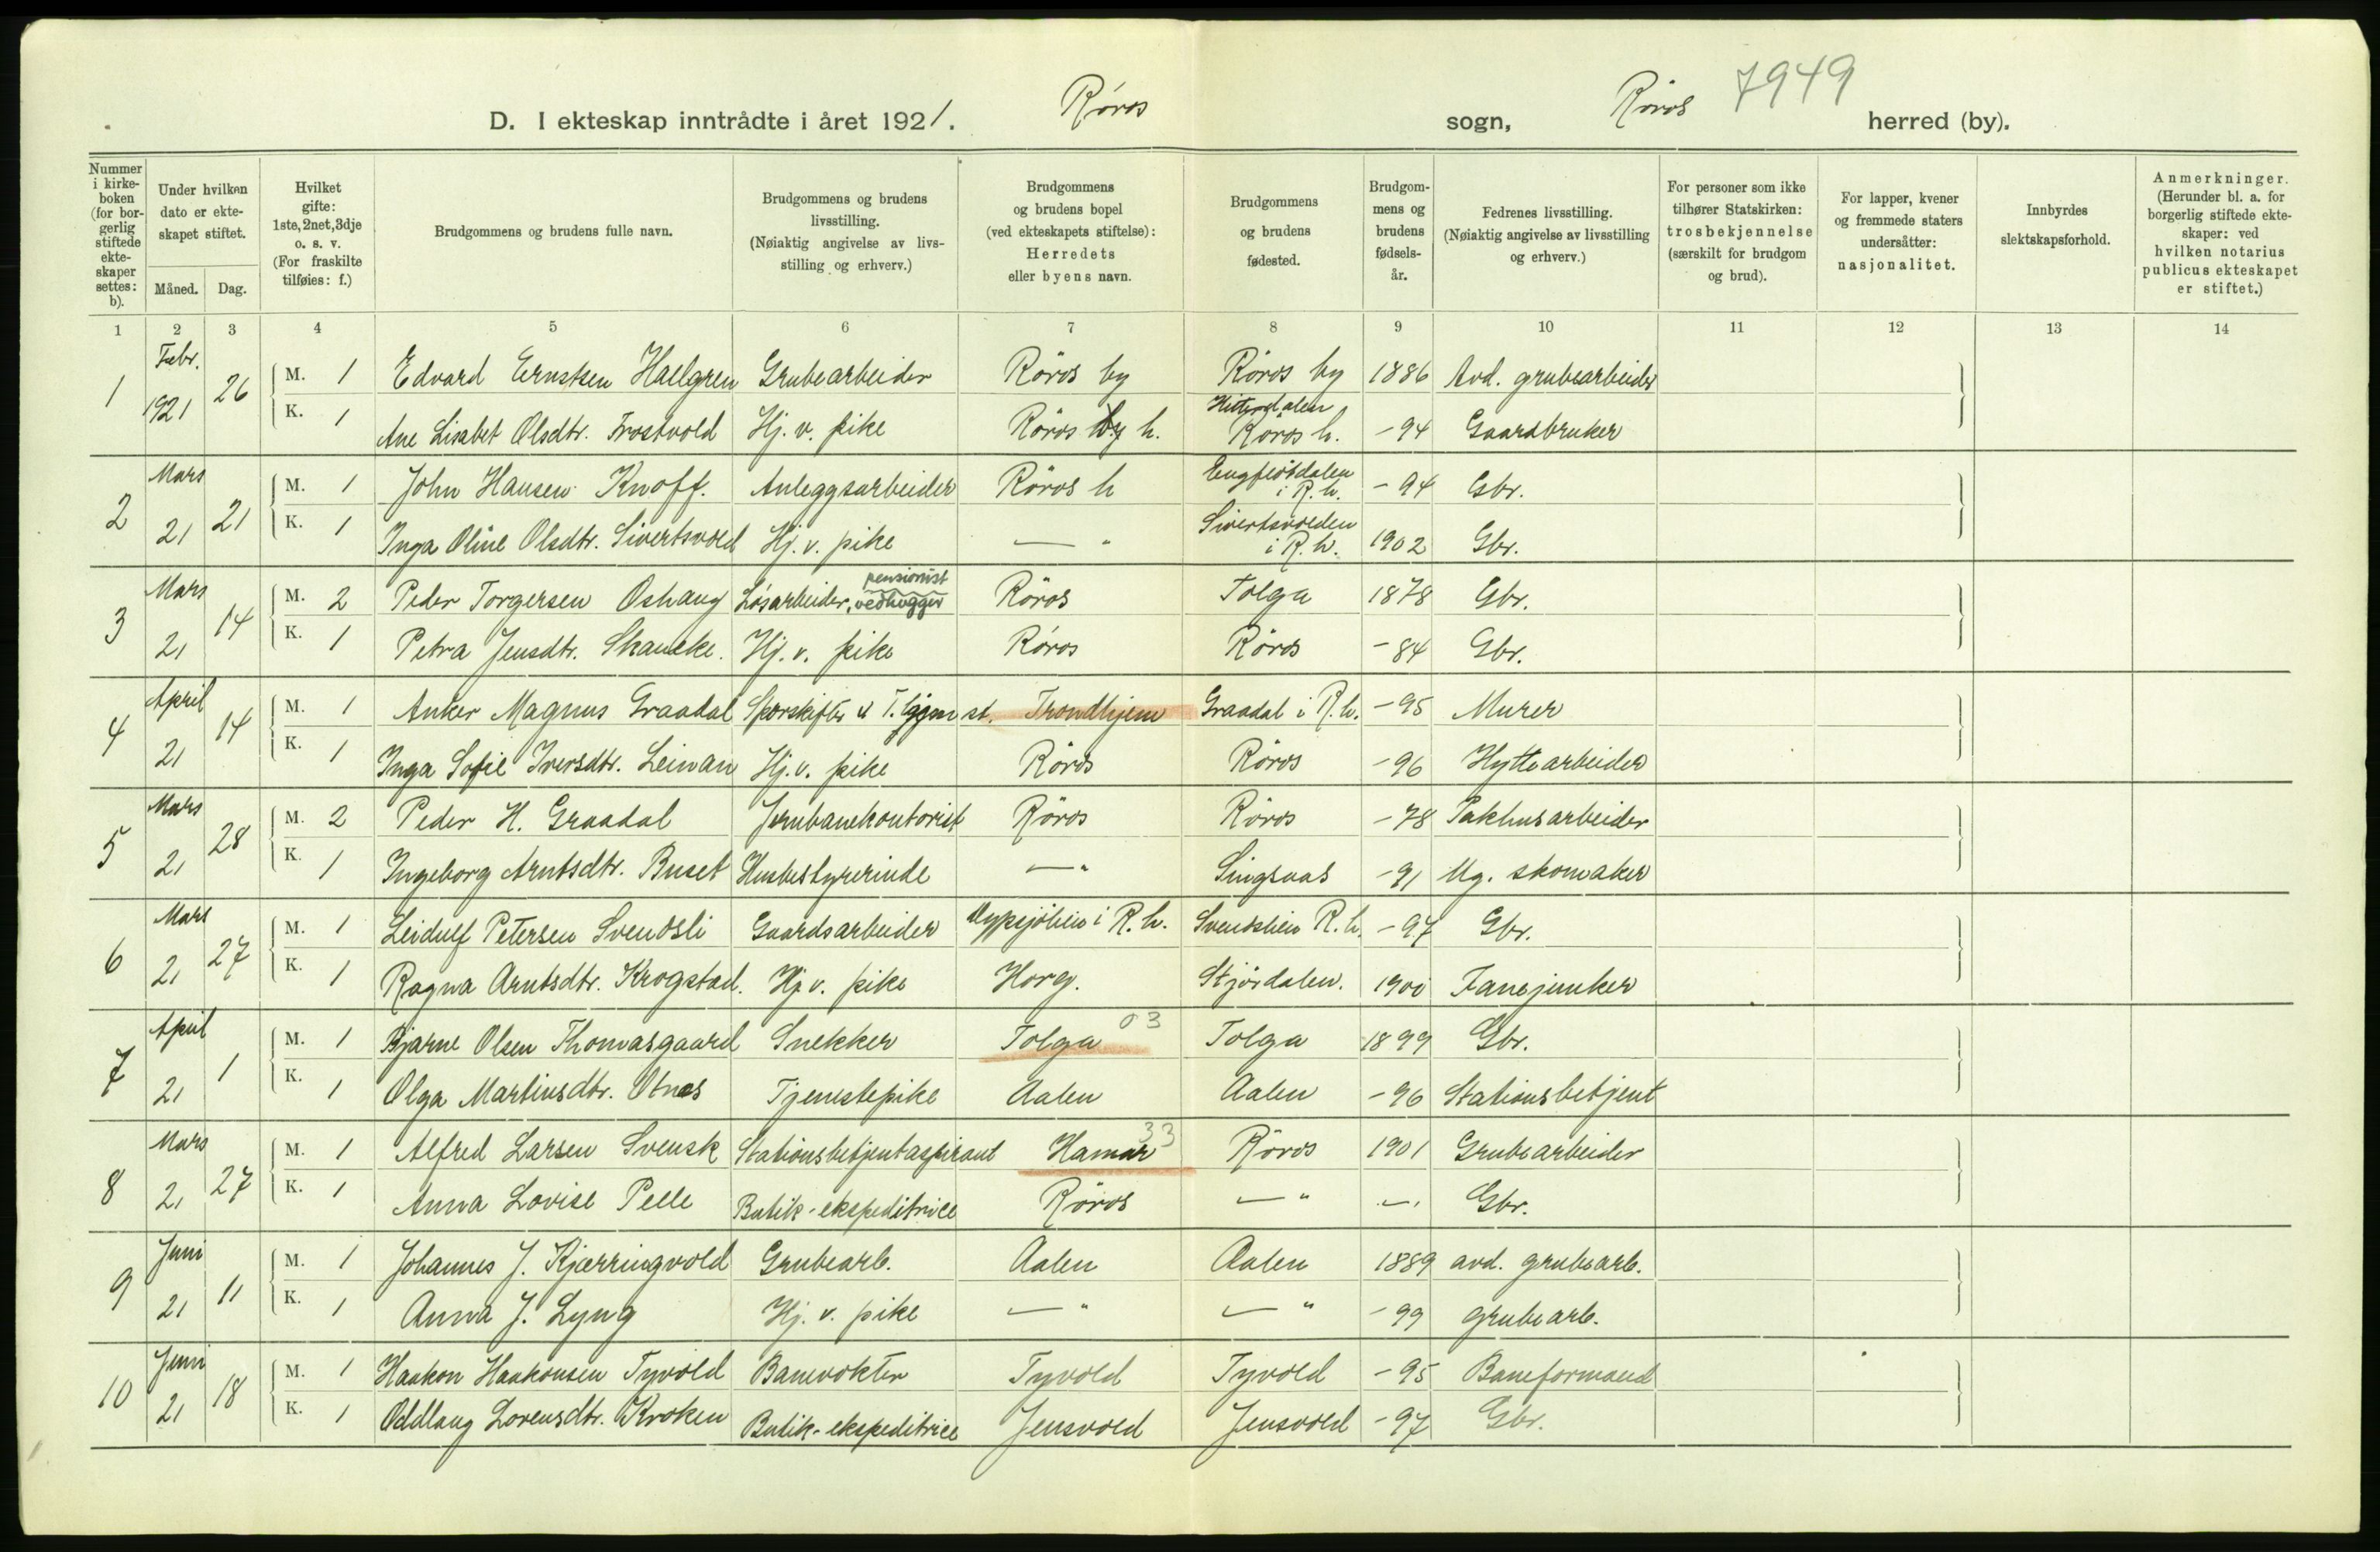 7949
D. I ekteskap inntrådte i året 1921. Røros sogn, Røros herred (by).
Nummer i kirkeboken (for borgerlig stiftede ekteskaper settes: b).
Under hvilken dato er ekteskapet stiftet.
Måned. Dag.
Hvilket gifte: 1ste, 2net, 3dje o. s. v. (For fraskilte tilføies: f.)
Brudgommens og brudens fulle navn.
Brudgommens og brudens livsstilling. (Nøiaktig angivelse av livsstilling og erhverv.)
Brudgommens og brudens bopel (ved ekteskapets stiftelse): Herredets eller byens navn.
Brudgommens og brudens fødested.
Brudgommens og brudens fødselsår.
Fedrenes livsstilling. (Nøiaktig angivelse av livsstilling og erhverv.)
For personer som ikke tilhører Statskirken: trosbekjennelse (særskilt for brudgom og brud).
For lapper, kvener og fremmede staters undersåtter: nasjonalitet.
Innbyrdes slektskapsforhold.
Anmerkninger. (Herunder bl. a. for borgerlig stiftede ekteskaper: ved hvilken notarius publicus ekteskapet er stiftet.)
1 2 3 4 5 6 7 8 9 10 11 12 13 14
1 Febr. 1921 26 M. 1 Edvard Ernstsen Hallgren Grubearbeider Røros by Røros by 1886 Avd. grubearbeider
K. 1 Ane Lisabet Olsdtr. Trostvold Hj. v. pike Røros by h. Hitterdalen Røros h. -94 Gaardbruker
2 Mars 21 21 M. 1 John Hansen Knoff. Anleggsarbeider Røros h i R. h. -94 Gbr.
K. 1 Inga Oline Olsdtr. Sivertsvold Hj. v. pike — " Sivertsvolden i R. h. 1902 Gbr.
3 Mars 21 14 M. 2 Peder Torgersen Oshaug Løsarbeider, vedhugger pensionist Røros Tolga 1878 Gbr.
K. 1 Petra Jensdtr. Skancke. Hj. v. pike Røros Røros -84 Gbr.
4 April 21 14 M. 1 Anker Magnus Graadal Sporskifter st. Trondhjem Graadal i R. h. -95 Murer
K. 1 Inga Sofie Iversdtr. Leinan Hj. v. pike Røros Røros -96 Hyttearbeider
5 Mars 21 28 M. 2 Peder H. Graadal Jernbanekontorist Røros Røros -78 Pakhusarbeider
K. 1 Ingeborg Arntsdtr. Buset Husbestyrerinde — " Singsaas -91 Ug. skomaker
6 Mars 21 27 M. 1 Leidulf Petersen Svendsli Gaardsarbeider i R. h. Svendslien R. h. -97 Gbr.
K. 1 Ragna Arntsdtr. Krogstad. Hj v. pike Horg. Stjørdalen. 1900 Fanejunker
7 April 21 1 M. 1 Bjarne Olsen Thomasgaard Snekker Tolga 03 Tolga 1899 Gbr.
K. 1 Olga Martinsdtr. Otnes Tjenestepike Aalen Aalen -96 Stationsbetjent
8 Mars 21 27 M. 1 Alfred Larsen Svensk Stationsbetjentaspirant Hamar 33 Røros 1901 Grubearbeider
K. 1 Anna Lovise Pelle Butik-ekspeditrice Røros — " — . Gbr.
9 Juni 21 11 M. 1 Johannes J. Kjærringvold Grubearb. Aalen Aalen 1889 avd. grubearb.
K. 1 Anna J. Lyng Hj. v. pike — " — " -99 grubearb.
10 Juni 21 18 M. 1 Haakon Haakonsen Tyvold Banevokter Tyvold Tyvold -95 Baneformand
K. 1 Oddlaug Lorensdtr. Kroken Butik-ekspeditrice Jensvold Jensvold -97 Gbr.